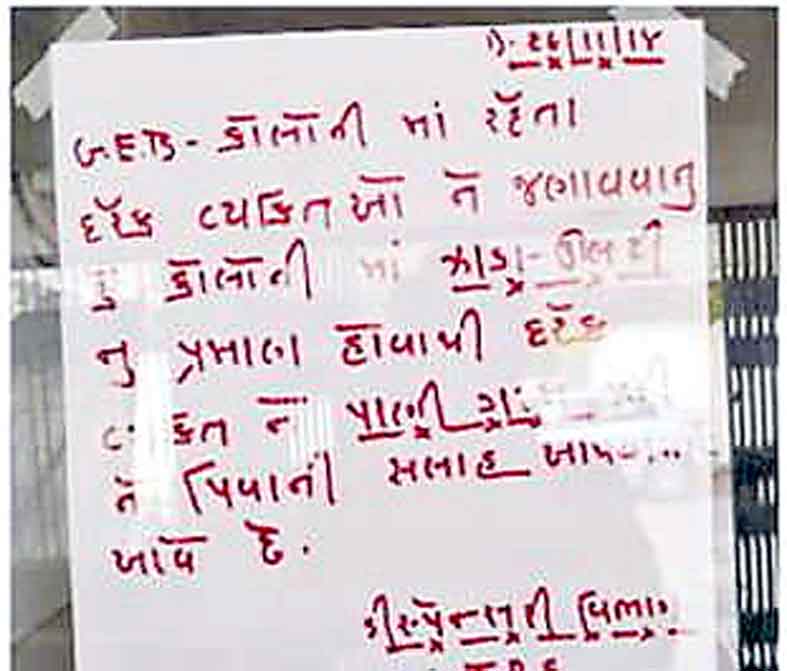 તા. ૨૬/૧૧/૧૪
G.E.B - કોલોની માં રહેતા
દરેક વ્યકિત ઓ ને જણાવવાનુ
કે કોલોની માં ઝાડા-ઉલટી
નુ પ્રમાણ હોવાથી દરેક
ને પાણી
ને પિવાની સલાહ
આવે છે.
ડીસ્પેન્સરી વિભાગ